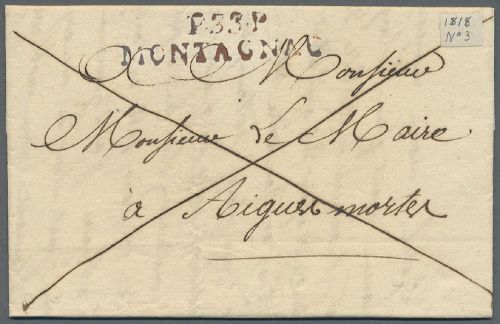 P.33.P
MONTAGNAC
1818
N° 3
A Monsieur
Monsieur Le Maire
à Aigues mortes